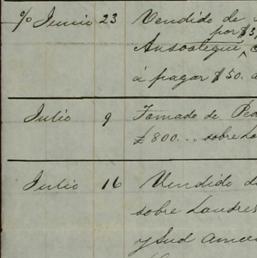 % Junio 23 Vendido de
por $3,
Ansoategui
á pagar $50. a
Julio 9 Tomado de Pe
£800... sobre Lo
Julio 16 Vendido d
sobre Londres
y Sud Amer